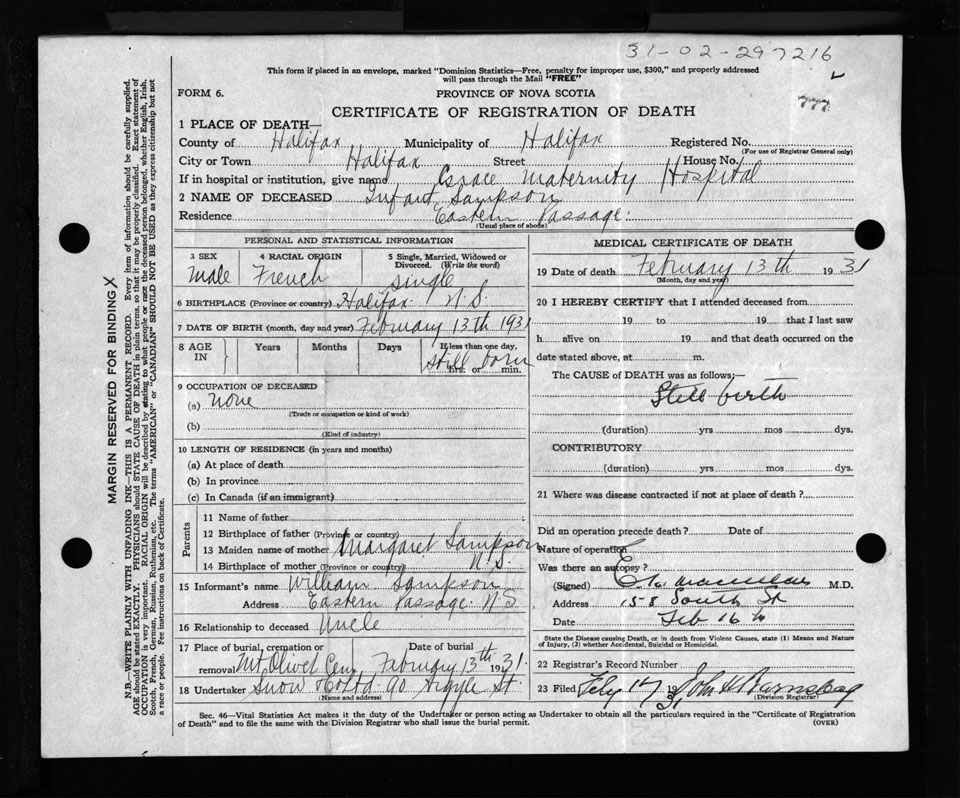 31-02-297216
This form if placed in an envelope, marked "Dominion Statistics—Free, penalty for improper use, $300," and properly addressed
will pass through the Mail "FREE"
FORM 6.
PROVINCE OF NOVA SCOTIA
777
CERTIFICATE OF REGISTRATION OF DEATH
1 PLACE OF DEATH—
County of Halifax Municipality of Halifax Registered No.
(For use of Registrar General only)
City or Town Halifax Street House No.
If in hospital or institution, give name Grace Maternity Hospital
2 NAME OF DECEASED Infant Sampson
Residence Eastern Passage.
(Usual place of abode)
PERSONAL AND STATISTICAL INFORMATION
3 SEX 4 RACIAL ORIGIN 5 Single, Married, Widowed or
Divorced. (Write the word)
Male French single
6 BIRTHPLACE (Province or country) Halifax N.S.
7 DATE OF BIRTH (month, day and year) February 13th 1931
8 AGE IN Years Months Days If less than one day,
hrs. or min.
still born
9 OCCUPATION OF DECEASED
(a) none
(Trade or occupation or kind of work)
(b)
(Kind of industry)
10 LENGTH OF RESIDENCE (in years and months)
(a) At place of death
(b) In province
(c) In Canada (if an immigrant)
Parents
11 Name of father
12 Birthplace of father (Province or country)
13 Maiden name of mother Margaret Sampson
14 Birthplace of mother (Province or country) N.S.
15 Informant's name William Sampson
Address Eastern Passage N.S.
16 Relationship to deceased Uncle
17 Place of burial, cremation or Date of burial
removal Mt Olivet Cem February 13th 1931.
18 Undertaker Snow Co Ltd 90 Argyle St.
(Name and address)
MEDICAL CERTIFICATE OF DEATH
19 Date of death February 13th 1931
(Month, day and year)
20 I HEREBY CERTIFY that I attended deceased from
19 to 19 that I last saw
h alive on 19 and that death occurred on the
date stated above, at m.
The CAUSE of DEATH was as follows:—
Still birth
(duration) yrs mos dys.
CONTRIBUTORY
(duration) yrs mos dys.
21 Where was disease contracted if not at place of death?
Did an operation precede death? Date of
Nature of operation
Was there an autopsy?
(Signed) M.D.
Address 158 South St
Date Feb 16th
State the Disease causing Death, or in death from Violent Causes, state (1) Means and Nature
of Injury, (2) whether Accidental, Suicidal or Homicidal.
22 Registrar's Record Number
23 Filed Feby 17 1931 John H
(Division Registrar)
Sec. 46—Vital Statistics Act makes it the duty of the Undertaker or person acting as Undertaker to obtain all the particulars required in the "Certificate of Registration
of Death" and to file the same with the Division Registrar who shall issue the burial permit.
(OVER)
MARGIN RESERVED FOR BINDING X
N.B.—WRITE PLAINLY WITH UNFADING INK—THIS IS A PERMANENT RECORD. Every item of information should be carefully supplied.
AGE should be stated EXACTLY. PHYSICIANS should STATE CAUSE OF DEATH in plain terms, so that it may be properly classified. Exact statement of
OCCUPATION is very important. RACIAL ORIGIN will be described by stating to what people or race the deceased person belonged, whether English, Irish,
Scotch, French, German, Russian, Ruthenian, etc. The terms "AMERICAN" or "CANADIAN" SHOULD NOT BE USED as they express citizenship but not
a race or people. Fee instructions on back of Certificate.